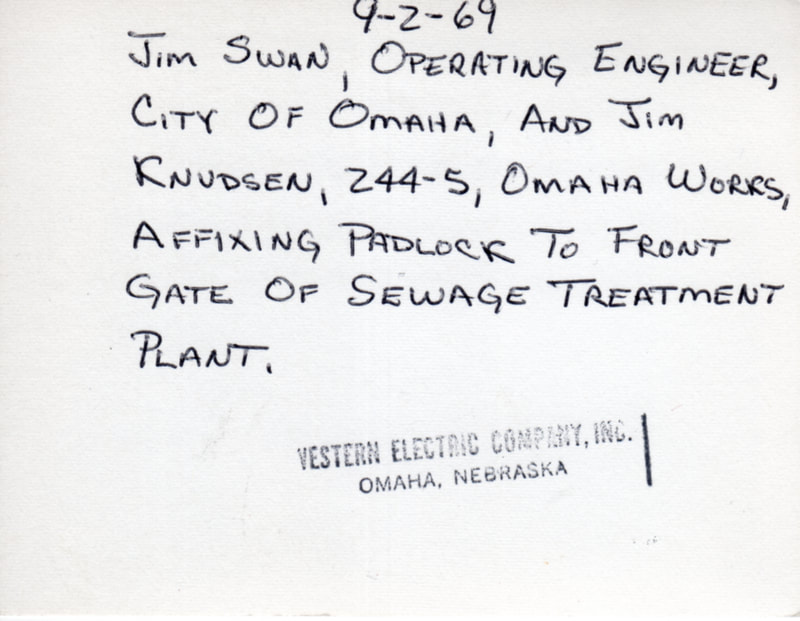 9-2-69
Jim Swan, Operating Engineer,
City of Omaha, and Jim
Knudsen, 244-5, Omaha Works,
Affixing Padlock to Front
Gate of Sewage Treatment
Plant.
VESTERN ELECTRIC COMPANY, INC.
OMAHA, NEBRASKA